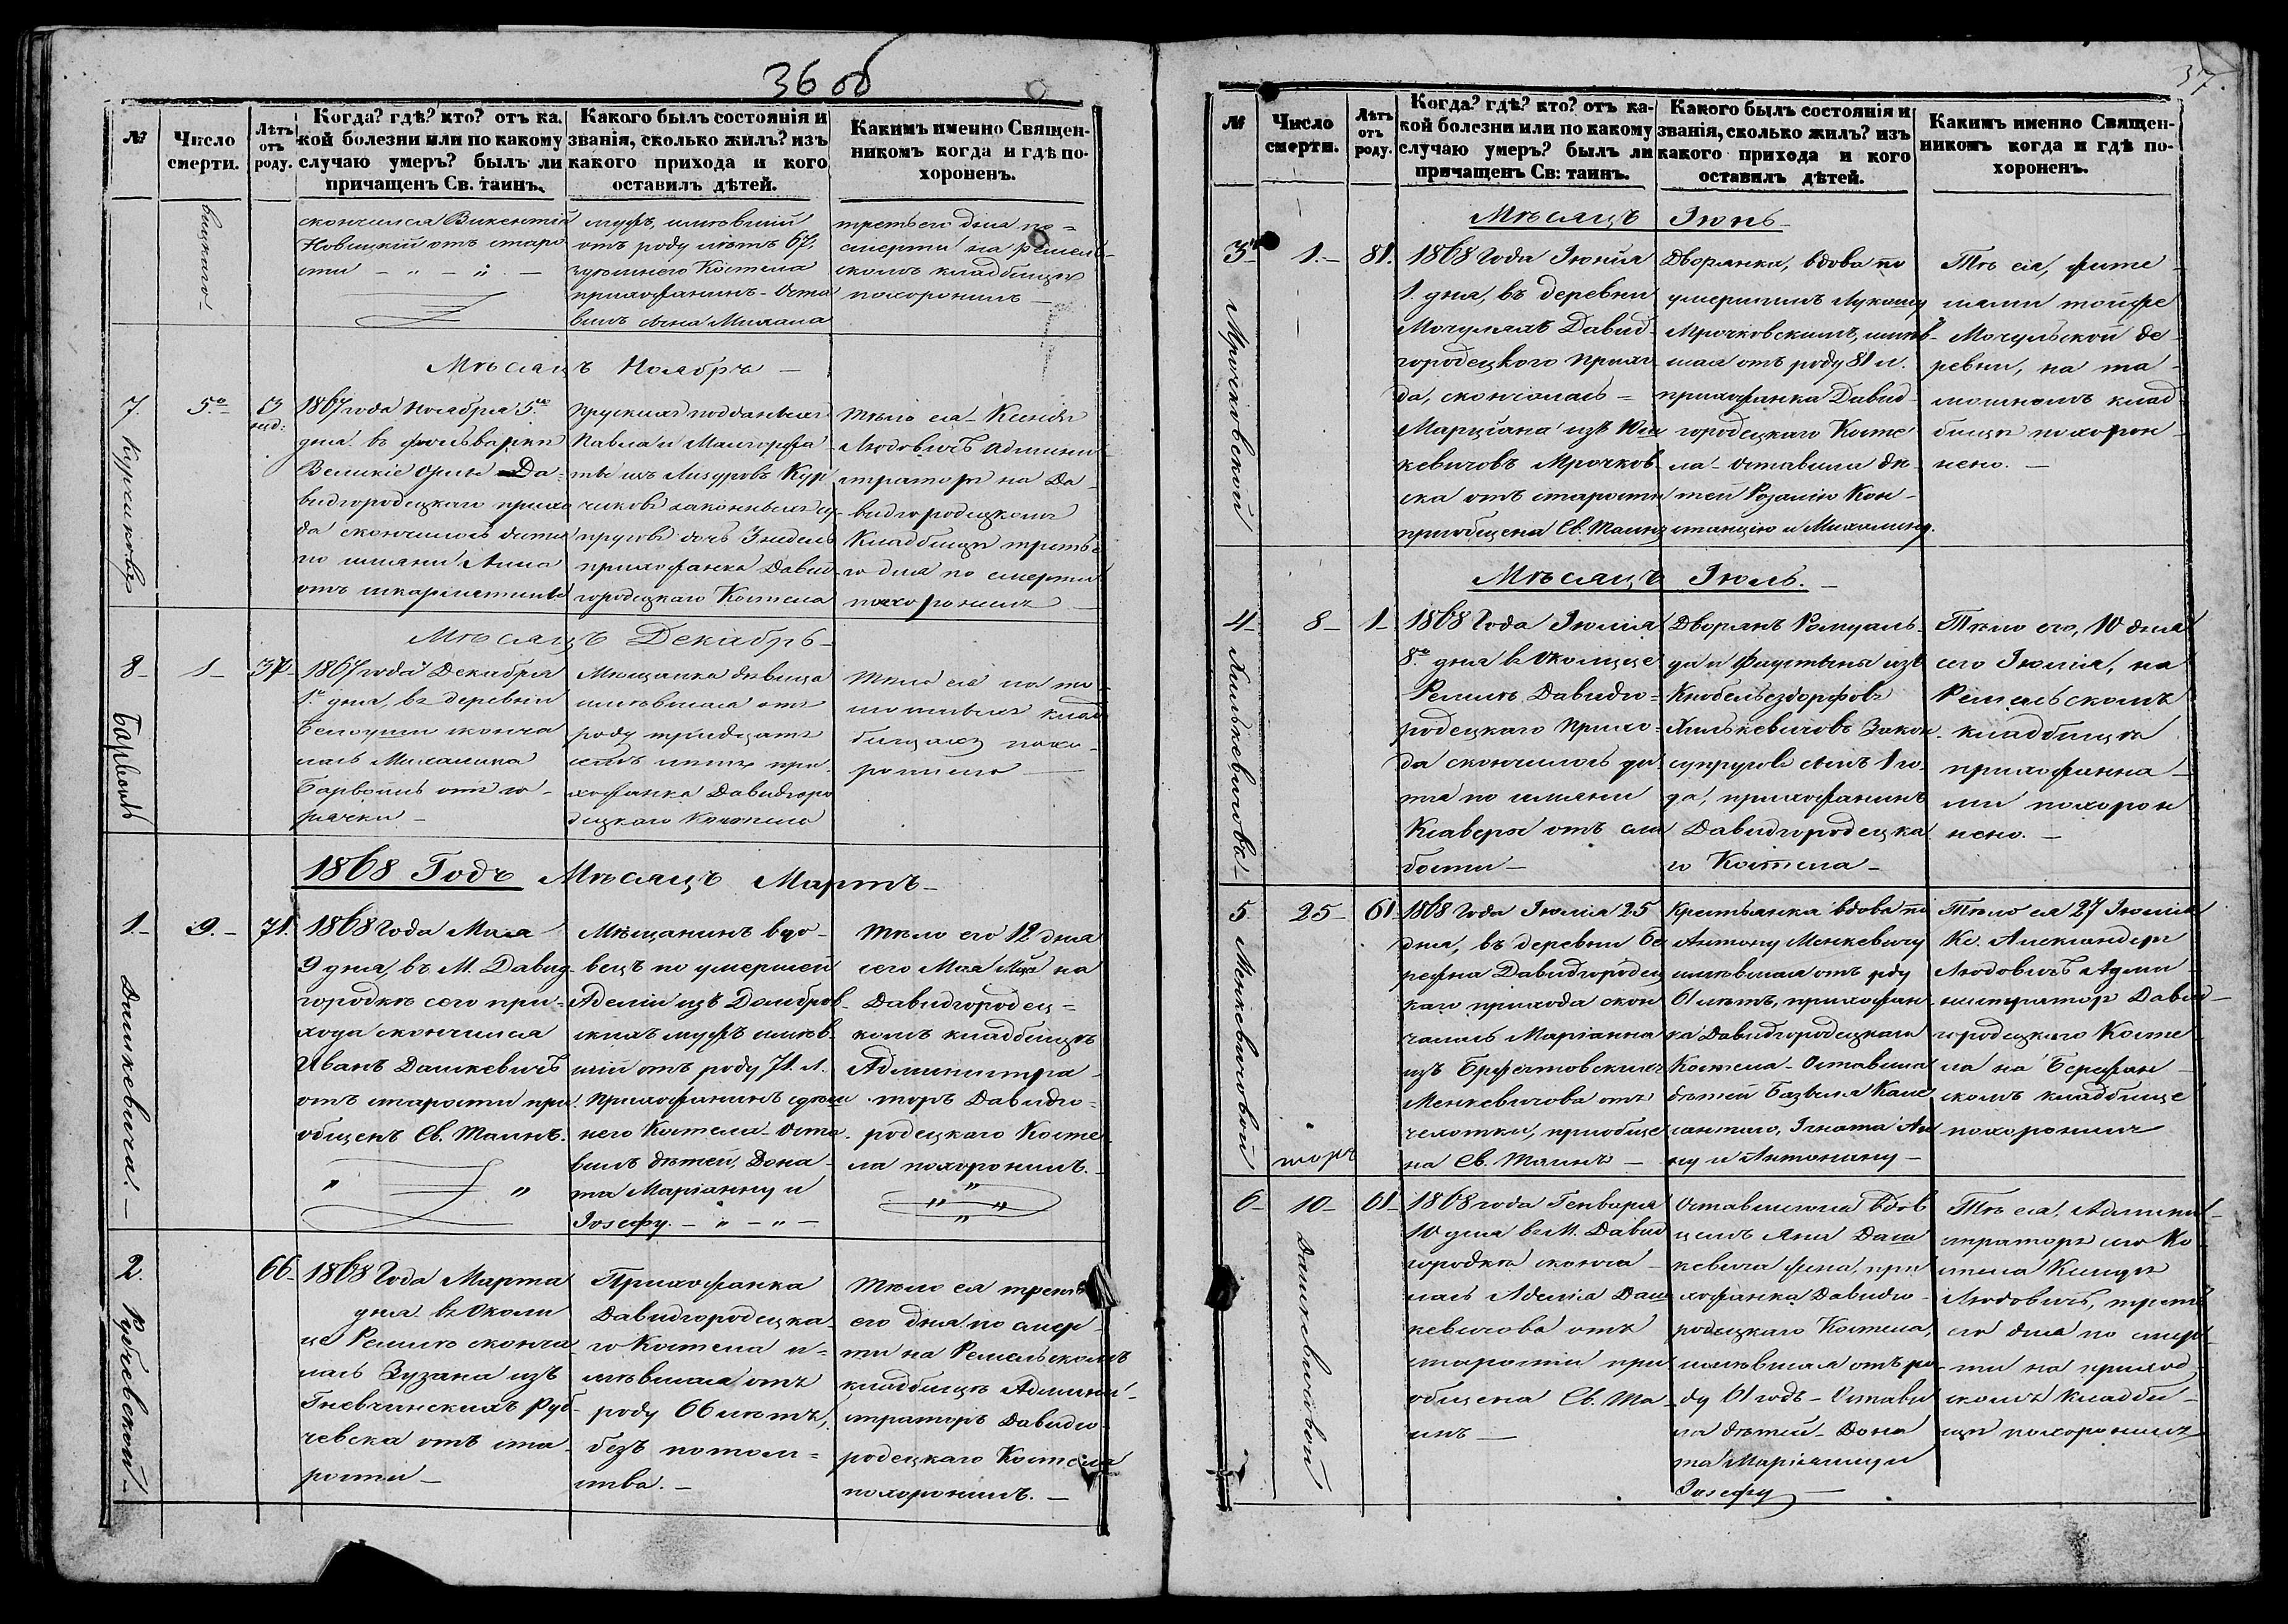 36 об
№
Число
смерти.
Лѣтъ
отъ
роду.
Когда? гдѣ? кто? отъ ка-
кой болезни или по какому
случаю умеръ? былъ ли
причащенъ Св. таинъ.
Какого былъ состоянія и
званія, сколько жилъ? изъ
какого прихода и кого
оставилъ дѣтей.
Какимъ именно Священ-
никомъ когда и гдѣ по-
хороненъ.
вицкаго
скончался Викентій
Новицкій отъ старо
сти
мужъ, имѣвшій
отъ роду лѣтъ 67.
Костела
прихожанинъ - Оста
вилъ сына Михала
третьего дня по=
смерти на Ремель-
скомъ кладбищѣ
похоронилъ
Мѣсяцъ Ноябрь
7.
Курчиковъ
5го
3
нед:
1867 года Ноября 5го
дня въ фольварки
Великіе Орлы Да-
видгородецкаго прихо
да скончалось дитя
по имяни Анна
отъ шкарлятины
Прускихъ подданныхъ
Павла и Малгоржа
ты изъ Курь
чиковъ законныхъ су-
пруговъ дочь 3 недель
прихожанка Давид
городецкаго Костела
Тѣло ея Ксендзъ
Людовичъ Админи
страторъ на Да-
видгородецкомъ
Кладбищѣ третье
го дня по смерти
похоронилъ
Мѣсяцъ Декабрь
8
Барвоть
1
37
1867 года Декабря
1го дня, въ деревни
сконча
лась Михалина
отъ го-
рячки
Мещанка девица
имѣвшая отъ
роду тридцать
семь лѣтъ при-
хожанка Давидгоро
децкаго Костела
Тѣло ея на
клад
бищахъ похо-
ронено
1868 Годъ Мѣсяцъ Мартъ
1.
Дашкевича.
9.
71.
1868 Года Мая
9 дня, въ М. Давид-
городкѣ сего при-
хода скончался
Иванъ Дашкевичъ
отъ старости при
общенъ Св. Таинъ.
Мещанинъ вдо-
вецъ по умершей
Аделіи изъ Домбров-
скихъ мужъ имѣв-
шій отъ роду 71. л.
Прихожанинъ здѣш
него Костела - Оста-
вилъ дѣтей, Дона-
та Маріанну и
Іозефу.
Тѣло его 12 дня
сего Мая Мца на
Давидгородец=
комъ кладбищѣ
Администра-
торъ Давидго-
родецкаго Косте
ла похоронилъ.
2.
Рубчевской
66
1868 Года Марта
дня въ Околи
це Ремлю сконча
лась Зузана изъ
Гневчинскихъ Руб-
чевска отъ ста-
рости
Прихожанка
Давидгородецка-
го Костела и=
мѣвшая отъ
роду 66 лѣтъ,
безъ потом=
ства.
Тѣло ея треть
его дня по смер-
ти на Ремельскомъ
кладбищѣ Админи-
страторъ Давидго-
родецкаго Костела
похоронилъ.
37.
№
Число
смерти.
Лѣтъ
отъ
роду.
Когда? гдѣ? кто? отъ ка-
кой болезни или по какому
случаю умеръ? былъ ли
причащенъ Св: таинъ.
Какого былъ состоянія и
званія, сколько жилъ? изъ
какого прихода и кого
оставилъ дѣтей.
Какимъ именно Священ-
никомъ когда и гдѣ по-
хороненъ.
Мѣсяцъ Іюнь
3
Мрочковской
1.
81.
1868 Года Іюния
1. дня, въ деревни
Мочуляхъ Давид-
городецкого Прихо
да, скончалась =
Марцiана изъ Юш
кевичовъ Мрочков-
ска отъ старости
приобщена Св. Таинъ
Дворянка, вдова по
умершимъ Лукашу
Мрочковскимъ, имѣв-
шая отъ роду 81 л.
прихожанка Давид-
городецкаго Косте
ла - оставила дѣ-
тей Розалію Кон-
станцію и Михалину.
Тѣ ея, жите-
лями тойже
Мочульской де-
ревни, на та-
мошномъ клад
бищѣ похорон-
нено.
Мѣсяцъ Іюль.
4
Хилькевичовъ
8
1
1868 Года Іюлия
8го дня въ Околице
Ремлѣ Давидго=
родецкаго прихо-
да скончалось ди-
тя по имяни
Ксаверы отъ сла
бости
Дворянъ Ромуаль-
да и Фаустыны изъ
Кнобельсздорфовъ
Хилькевичовъ Закон.
супруговъ сынъ 1 го-
да, прихожанинъ
Давидгородецка
го Костела
Тѣло его, 10 дня
сего Іюлія, на
Ремельскомъ
кладбищѣ
прихожана-
ми похорон
нено.
5
Менкевичовой
25
61
1868 Года Іюлія 25
дня, въ деревни Бе
режна Давидгородец
каго прихода скон
чалась Маріанна
изъ
Менкевичова отъ
чехотки, приобще
на Св. Таинъ
Крестьянка вдова по
Антону Менкевичу
имѣвшая отъ роду
61 лѣтъ, прихожан
ка Давидгородецкаго
Костела - Оставила
дѣтей Базыля Каме
Игната Ан
ну и Антонину
Тѣло ея 27 Іюлія
Кс. Александеръ
Людовичъ Адми-
нистраторъ Давид-
городецкаго Косте-
ла на Бережан-
скомъ кладбище
похоронилъ
6
Дашкевичовой
10
61
1868 года Генваря
10 дня въ М. Давид
городкѣ сконча-
лась Аделія Даш
кевичова отъ
старости при
общена Св. Та-
инъ
Оставшагося вдов
цемъ Яна Даш
кевича жена, при
хожанка Давидго-
родецкаго Костела,
имѣвшая отъ ро-
ду 61 годъ - Остави
ла дѣтей - Дона
та Маріанну и
Іозефу
Тѣ ея, Админи-
страторъ его Ко
стела Ксендзъ
Людовичъ, треть
его дня по смер-
ти на приход-
скомъ Кладби-
щѣ похоронилъ